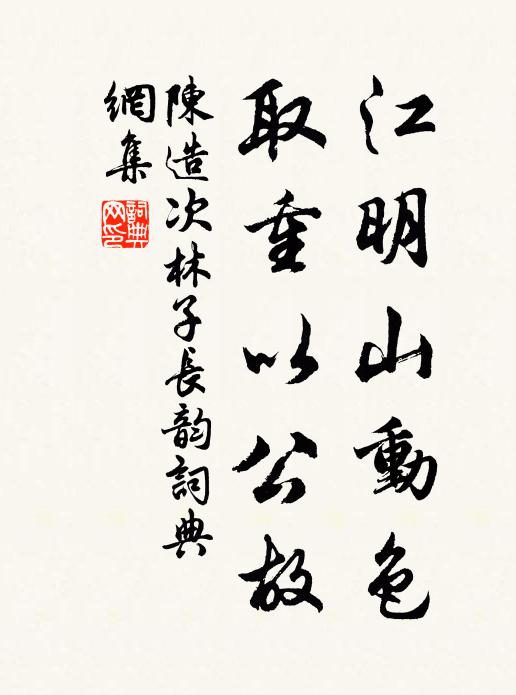 江明山動色
取重以公故
陳造次林子長韵詞典
網集
詞典
网印